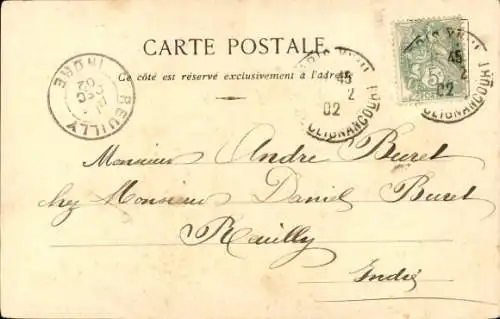 CARTE POSTALE
Ce côté est réservé exclusivement à l'adresse
REUILLY
INDRE
DEC
02
45
2
02
CLIGNANCOURT
45
2
02
CLIGNANCOURT
5
Monsieur André Buret
chez Monsieur Daniel Buret
Reuilly
Indre